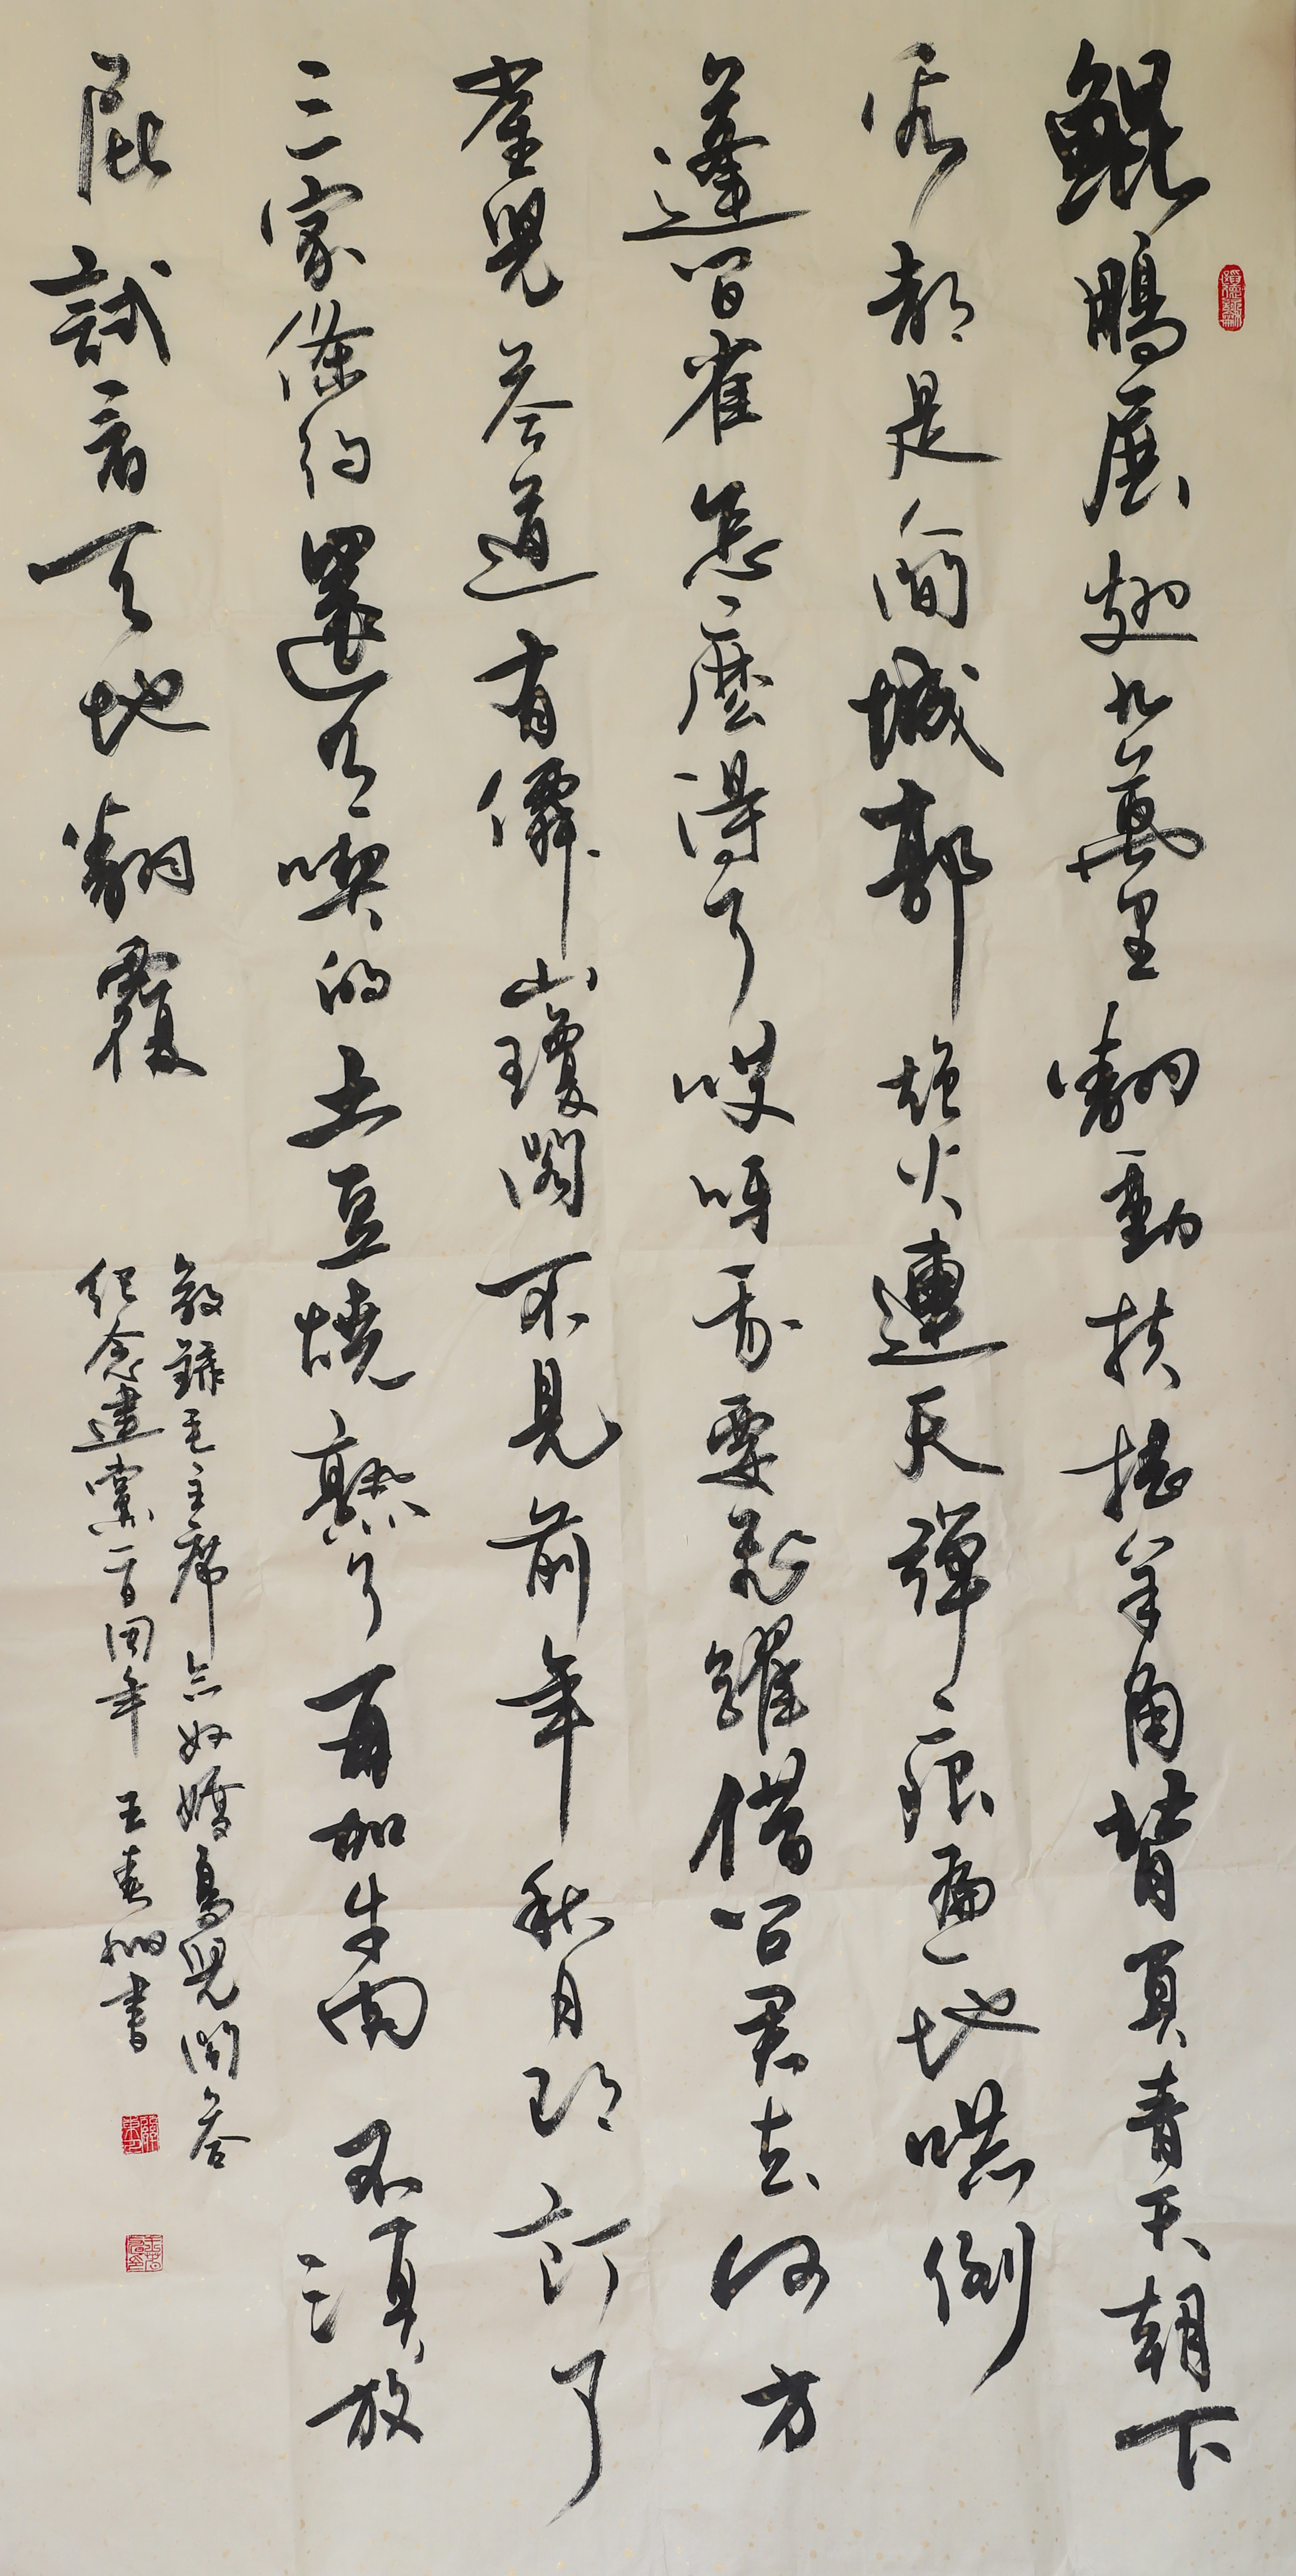 鯤鵬展翅九萬里翻動扶搖羊角背負青天朝下
看都是人間城郭炮火連天彈痕遍地嚇倒
蓬間雀怎麼得了哎呀我要飛躍借問君去何方
雀兒答道有僊山瓊閣不見前年秋月朗訂了
三家條約還有喫的土豆燒熟了再加牛肉不須放
屁試看天地翻覆
敬錄毛主席念奴嬌鳥兒問答
紀念建黨一百周年 王春書